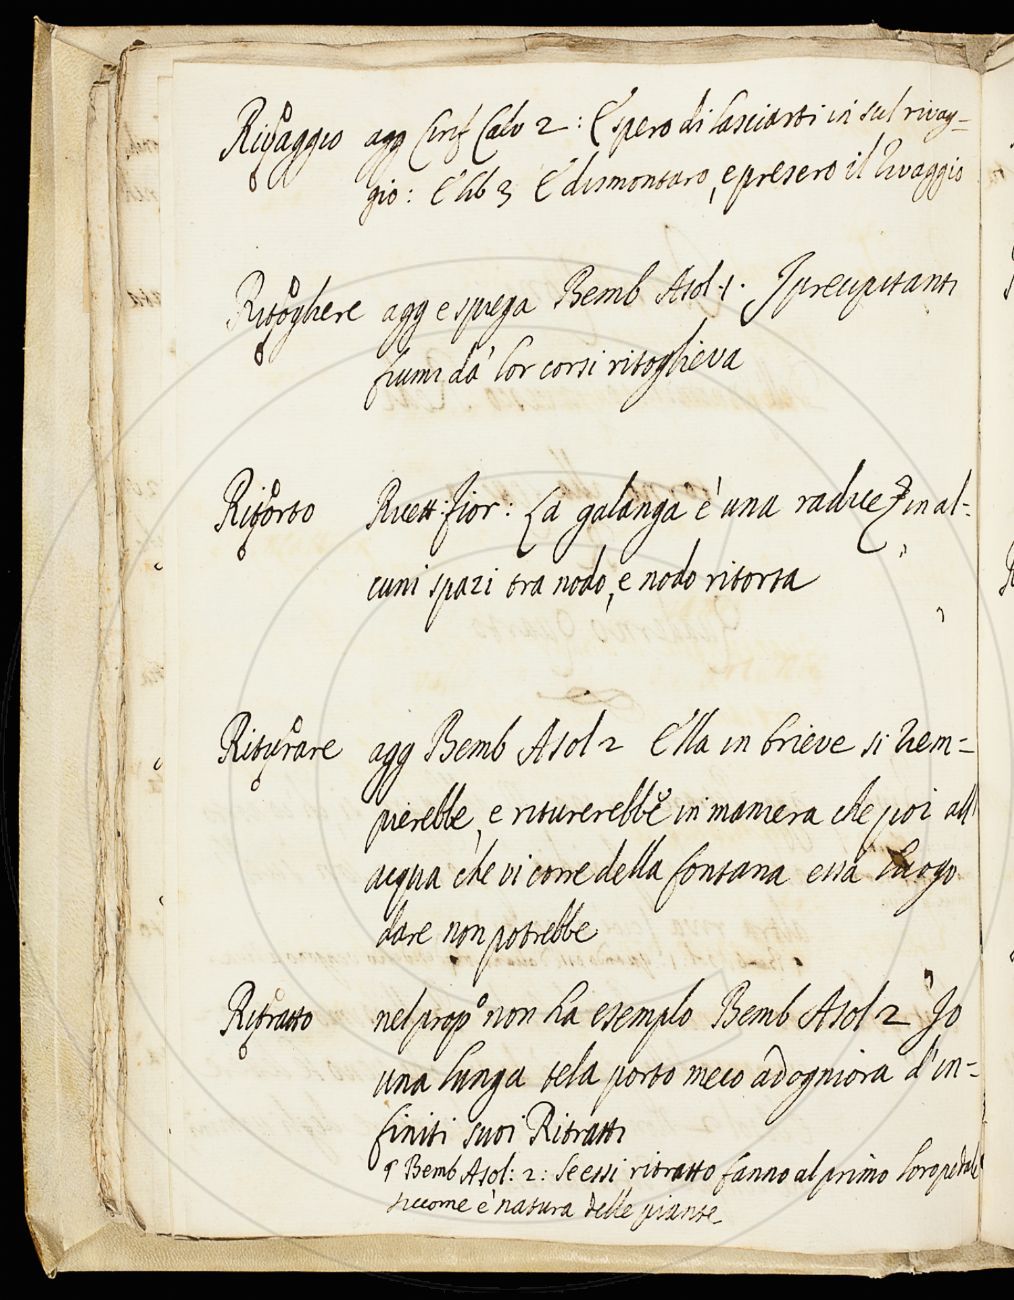 Rivaggio agg Cirif Calv 2: E spero di lasciarti in sul rivag=
gio: E lib 3 E dismontaro, e presero il Rivaggio
Ritogliere agg e spiega Bemb Asol. 1. I precipitanti
fiumi da' lor corsi ritoglieva
Ritorto Ricett: fior: La galanga è una radice in al=
cuni spazi tra nodo, e nodo ritorta
Riturare agg Bemb Asol 2 Ella in brieve si riem=
pierebbe, e riturerebbe in maniera che poi all'
acqua che vi corre della fontana essa luogo
dare non potrebbe
Ritratto nel propo non ha esempio Bemb Asol 2 Io
una lunga tela porto meco adogniora d'in=
finiti suoi Ritratti
Bemb Asol: 2: Se essi ritratto fanno al primo loro pedale
siccome è natura delle piante